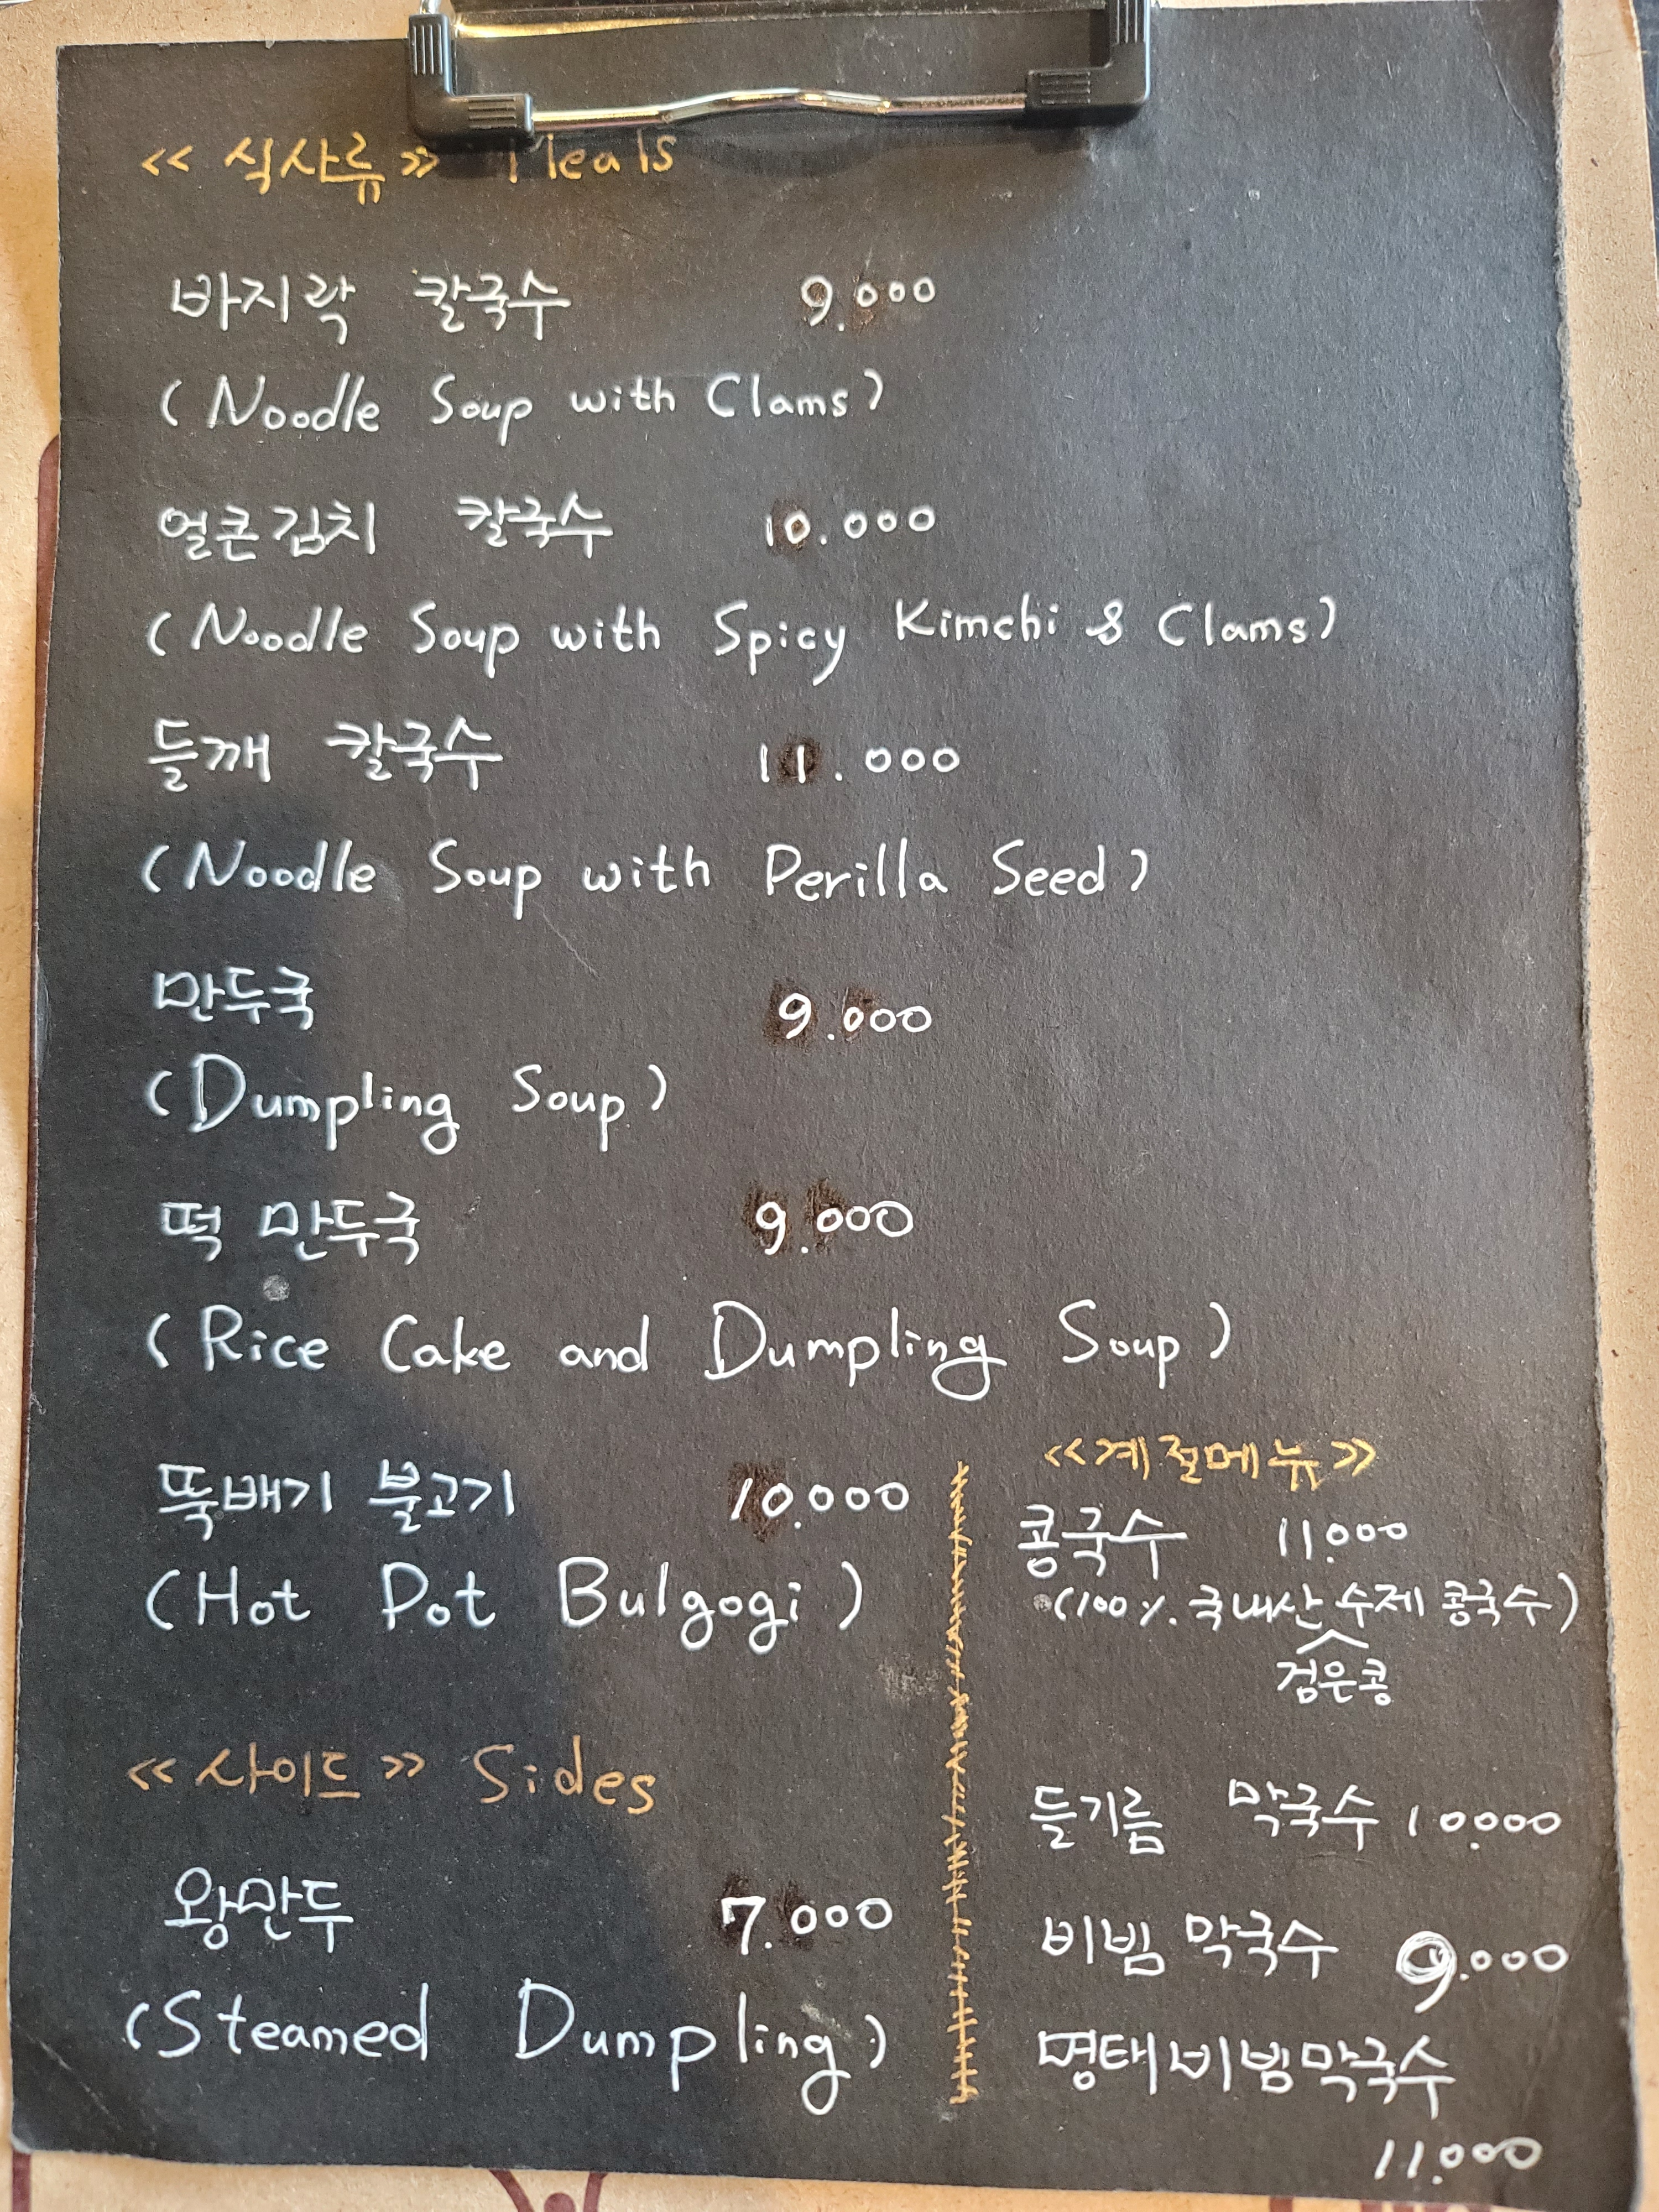 << 식사류 >> Meals
바지락 칼국수 9.000
(Noodle Soup with Clams)
얼큰김치 칼국수 10.000
(Noodle Soup with Spicy Kimchi & Clams)
들깨 칼국수 11.000
(Noodle Soup with Perilla Seed)
만두국 9.000
(Dumpling Soup)
떡 만두국 9.000
(Rice Cake and Dumpling Soup)
뚝배기 불고기 10.000
(Hot Pot Bulgogi)
<< 사이드 >> Sides
왕만두 7.000
(Steamed Dumpling)
<<계절메뉴>>
콩국수 11.000
(100%국내산 수제 콩국수)
검은콩
들기름 막국수 10.000
비빔 막국수 9.000
명태비빔막국수
11.000